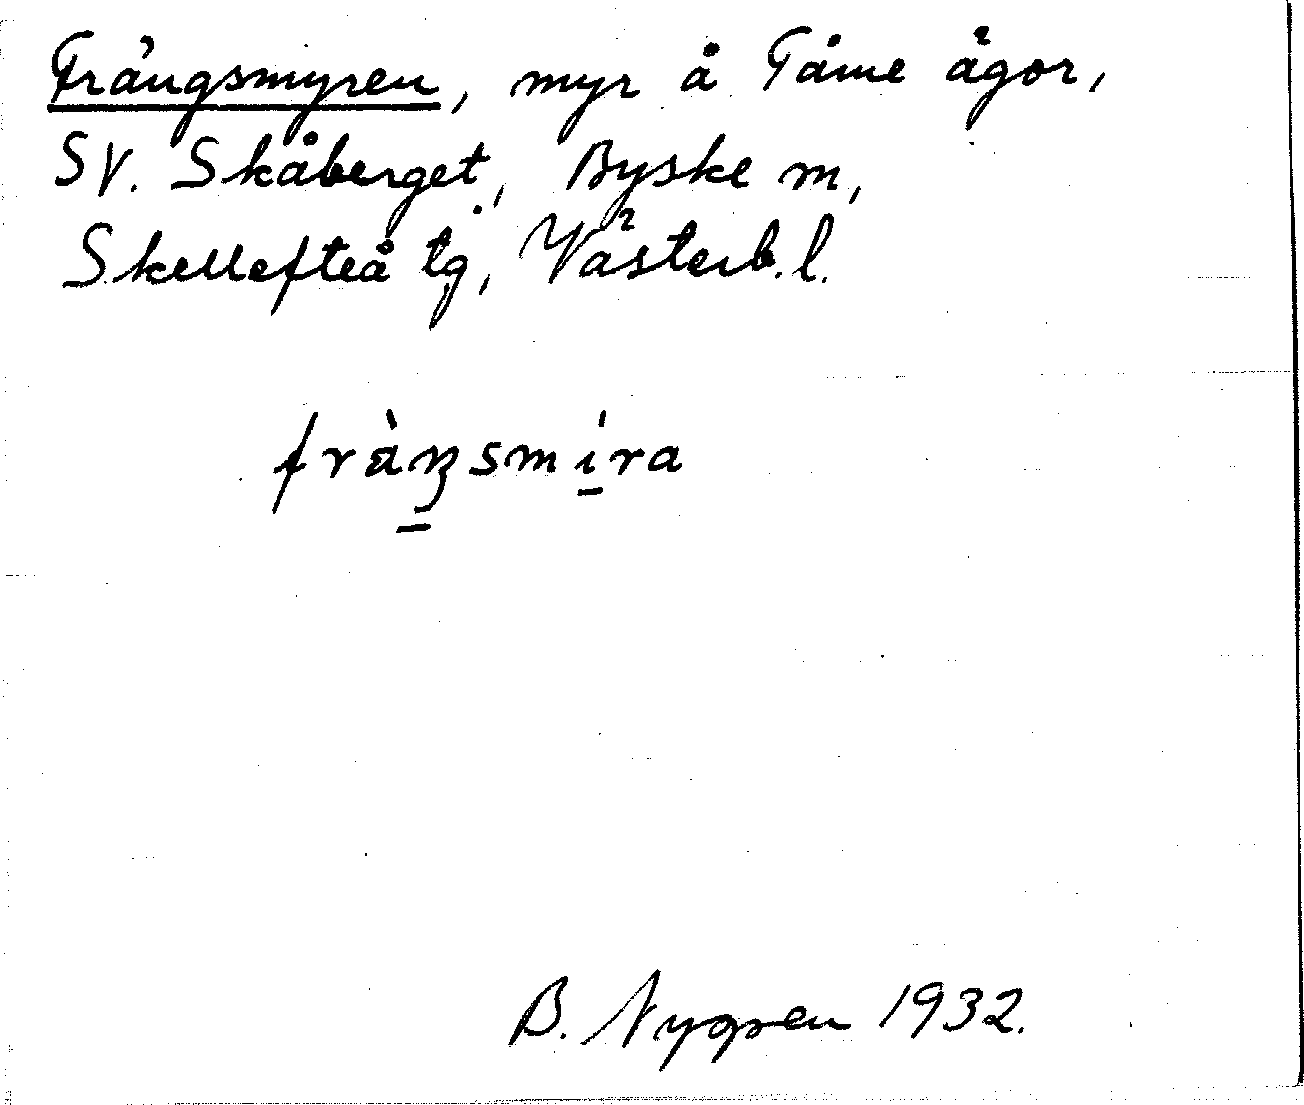 Frångsmyren, myr å Tåme ägor,
SV. Skåberget, Byske m,
Skellefteå tg, Västerb. l.
fràŋsmíra
B. Nygren 1932.